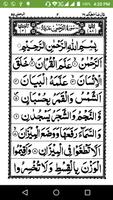 4:20 PM
سُورَةُ الرَّحْمٰنِ مَدَنِيَّةٌ
بِسْمِ اللّٰهِ الرَّحْمٰنِ الرَّحِيْمِ
اَلرَّحْمٰنُ عَلَّمَ الْقُرْاٰنَ خَلَقَ
الْاِنْسَانَ عَلَّمَهُ الْبَيَانَ
اَلشَّمْسُ وَالْقَمَرُ بِحُسْبَانٍ
وَّالنَّجْمُ وَالشَّجَرُ يَسْجُدٰنِ
وَالسَّمَآءَ رَفَعَهَا وَوَضَعَ
الْمِيْزَانَ اَلَّا تَطْغَوْا فِى
الْمِيْزَانِ وَاَقِيْمُوا
الْوَزْنَ بِالْقِسْطِ وَلَا تُخْسِرُوا